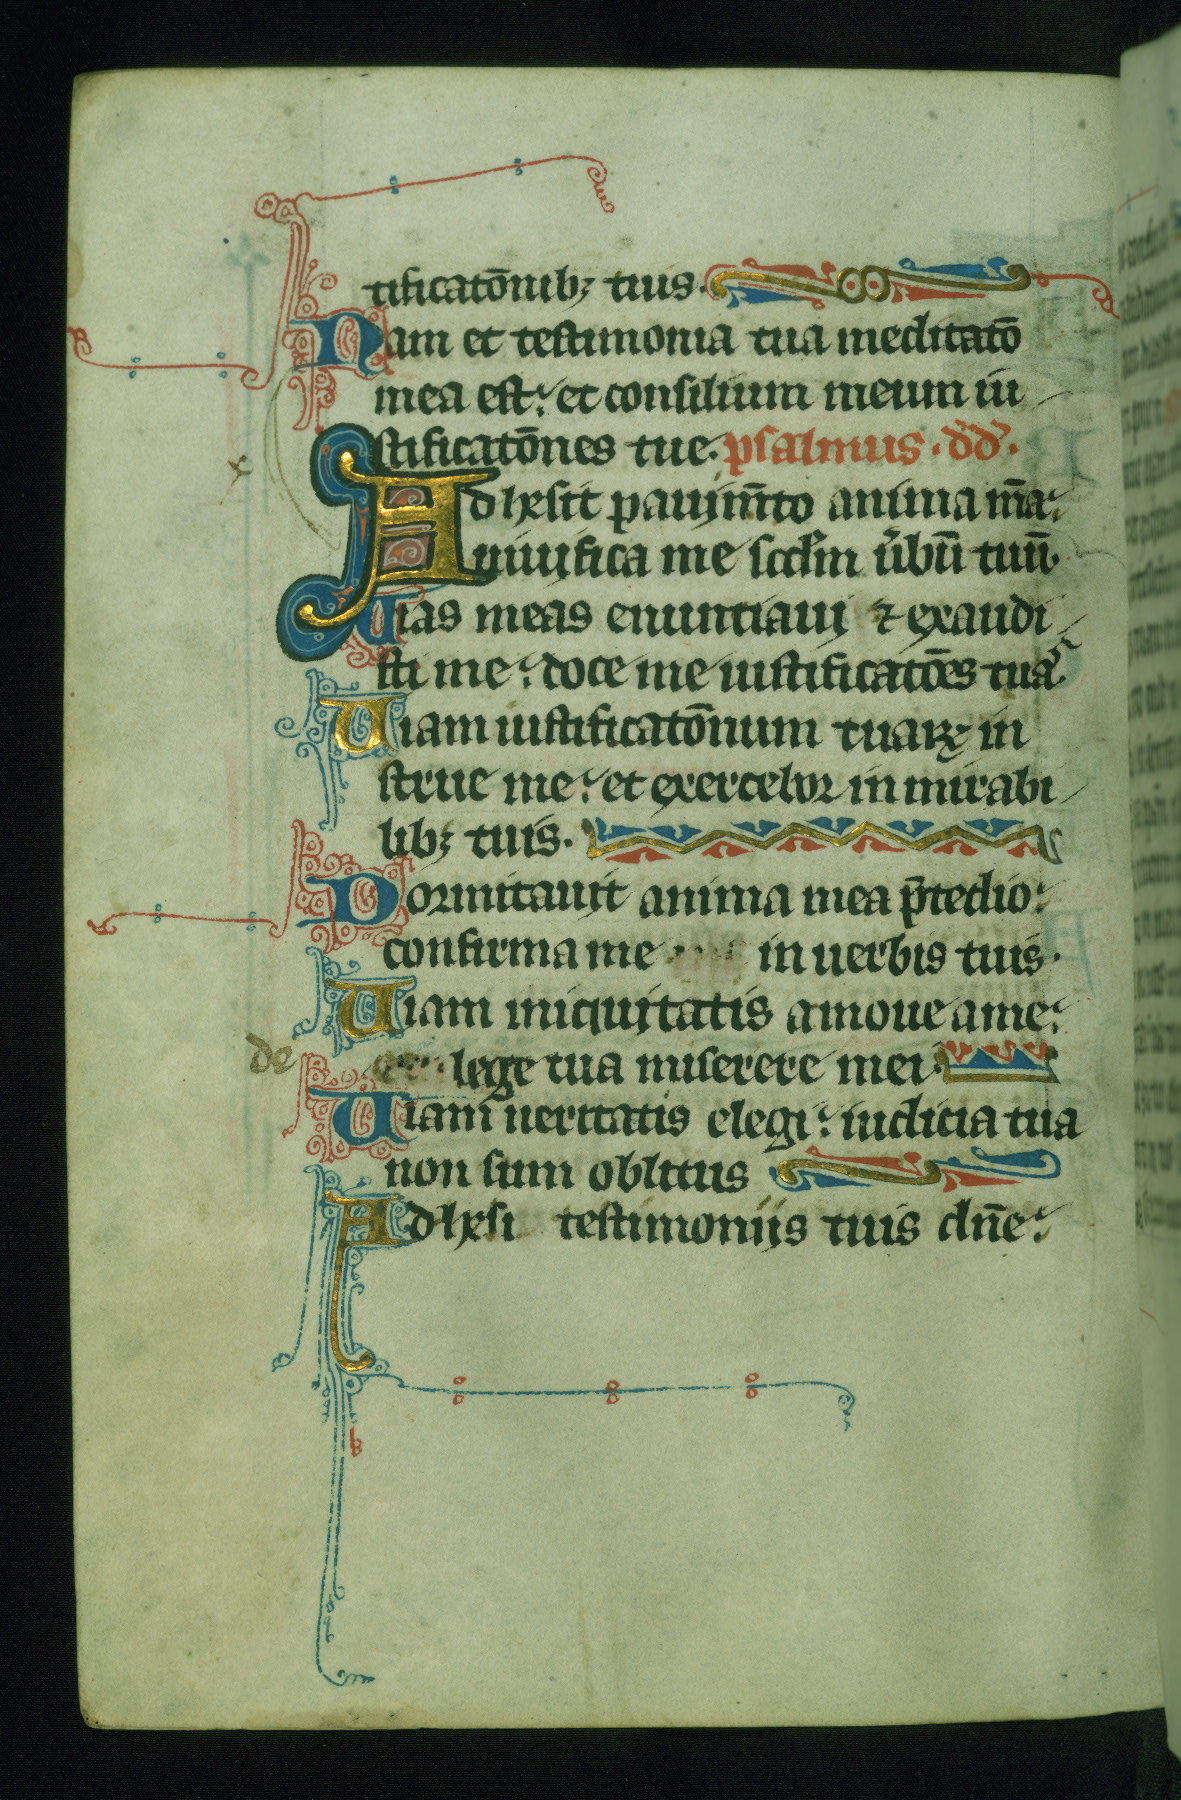 tificatōnib; tuis.
Nam et testimonia tua meditatō
mea est: et consilium meum iu
stificatōnes tue. psalmus. dd̄.
Adhesit pauim̄to anima m̄a:
uiuifica me scdm uerbū tuū.
Uias meas enuntiaui ⁊ exaudi
sti me: doce me iustificatōes tuas
Uiam iustificatōnum tuarꝝ in
strue me: et exercebor in mirabi
lib; tuis.
Dormitauit anima mea p̄ tedio:
confirma me in uerbis tuis.
Uiam iniquitatis amoue a me:
de lege tua miserere mei.
Uiam ueritatis elegi: iudicia tua
non sum oblitus
Adhesi testimoniis tuis dn̄e: